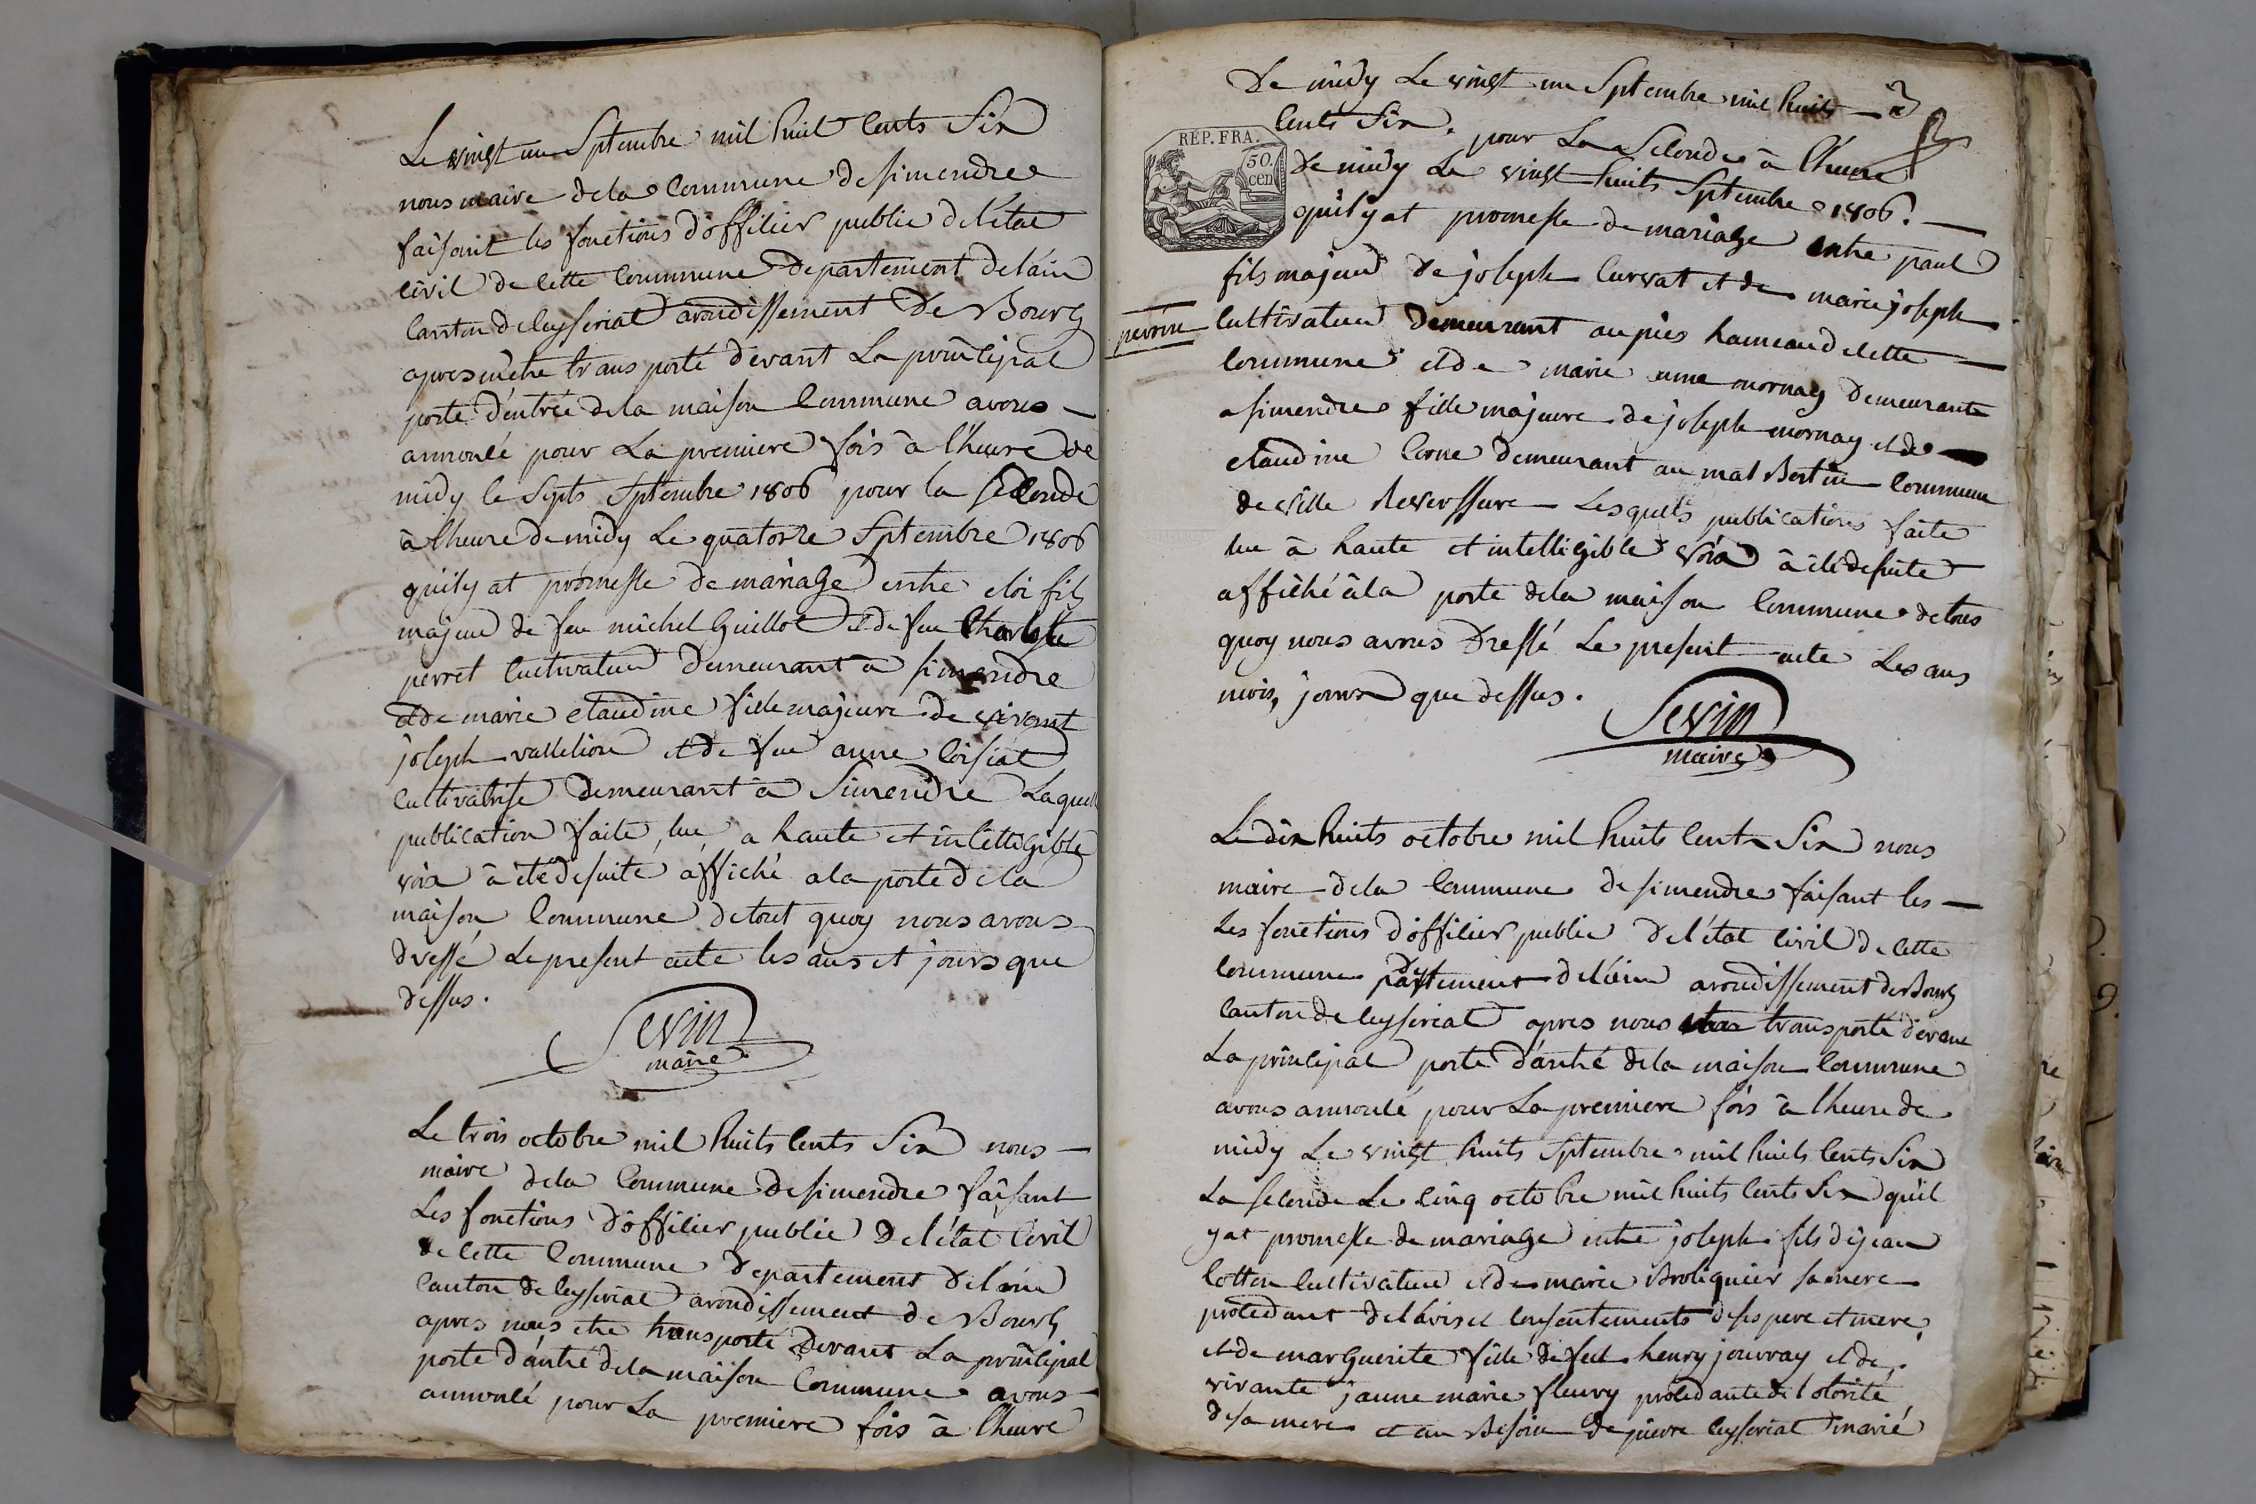 Le vingt un Septembre mil huit cents Six
nous maire dela commune desimendre
faisant les fonctions d'officier public de l'état
civil de cette commune departement delain
canton de ceyseriat arondissement De Bourg
apres m'etre transporté devant La principal
porte d'entrée dela maison commune avons
annoncé pour La premiere fois à l'heure de
midy le Septs Septembre 1806 pour la seconde
à lheure de midy Le quatorze Septembre 1806
quily at promesse de mariage entre eloi fils
majeur de feu michel Guillot et de feu Charlotte
perret cultivateur demeurant à simendre
et de marie claudine fille majeure de vivant
joseph vallelion et de feu anne loisiat
cultivatrise demeurant à Simendre Laquelle
publication faite, lue, a haute et intelligible
voix à été desuite affiché a la porte de la
maison commune de tout quoy nous avons
dressé Le present acte les ans et jours que
dessus.
Sevin
maire
Le trois octobre mil huits cents Six nous
maire dela commune desimendre faisant
Les fonctions d'officier public de l'état civil
de cette commune departement delain
canton de ceyseriat arondissement de Bourg
apres nous etre transporté devant La principal
porte d'antré dela maison commune avons
annoncé pour La premiere fois à l'heure
De midy Le vingt un Septembre mil huit
cents Six. pour La Seconde à l'heure
RÉP. FRA.
50.
cen
De midy Le vingt huits Septembre 1806.
quily at promesse de mariage entre paul
fils majeur de joseph Curvat et de marie joseph
perrin
cultivateur demeurant au pies hameau de cette
commune et de marie anne mornay demeurante
a simendre fille majeure de joseph mornay et de
claudine Corne demeurant au mas Bertin commune
de ville Reverssure Lesquels publications faite
lue à haute et intelligible voix à été desuite
affiché à la porte dela maison commune detous
quoy nous avons dressé Le present acte Les ans
mois, jours que dessus.
Sevin
maire
Le dix huits octobre mil huits cents Six nous
maire dela commune desimendre faisant les
Les fonctions d'officier public de l'état civil de cette
commune departement delain arondissement de Bourg
canton de ceyseriat apres nous etre transporté devant
La principal porte d'antré dela maison commune
avons annoncé pour La premiere fois à lheure de
midy Le vingt huits Septembre mil huits cents Six
La seconde Le cinq octobre mil huits cents Six qu'il
y at promesse de mariage entre joseph fils dejean
cotton cultivateur et de marie Broliquier samere
procedant de l'avis et consentements deses pere et mere
et de marguerite fille de feu henry jouvray et de
vivante jeanne marie fleury procedante de l'otorité
desa mere et au Besoin de pierre ceyseriat marié